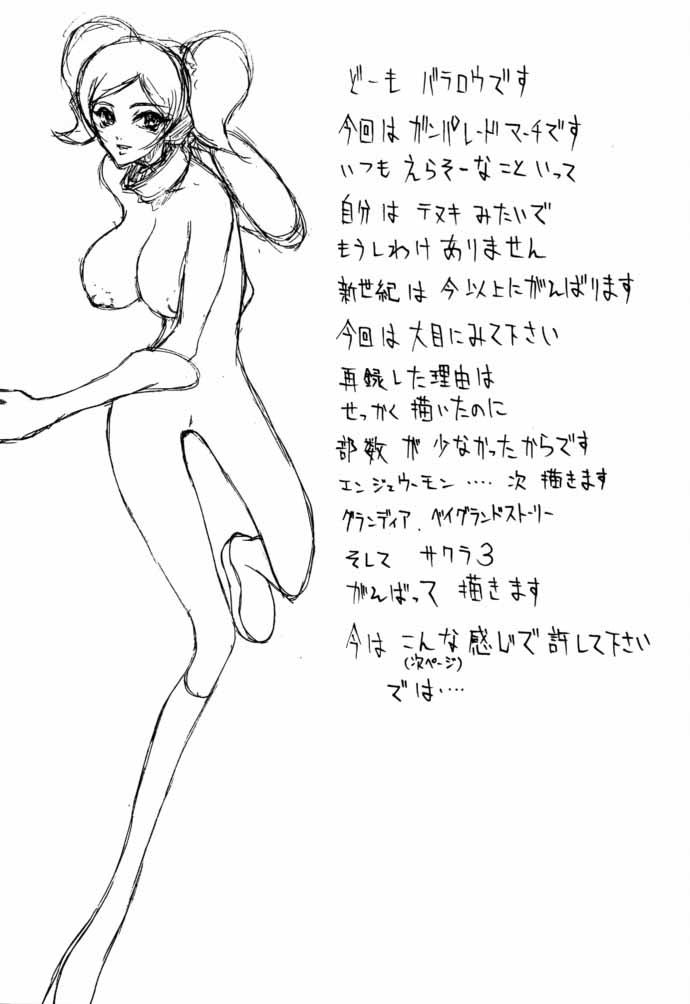 どーも バラロウです
今回は ガンパレードマーチです
いつも えらそーなこといって
自分は テヌキ みたいで
もうしわけ ありません
新世紀は 今以上にがんばります
今回は 大目にみて下さい
再録した理由は
せっかく描いたのに
部数が 少なかったからです
エンジェウーモン ‥‥ 次 描きます
グランディア. ベイグランドストーリー
そして サクラ3
がんばって 描きます
今は こんな感じで 許して下さい
(次ページ)
では‥‥